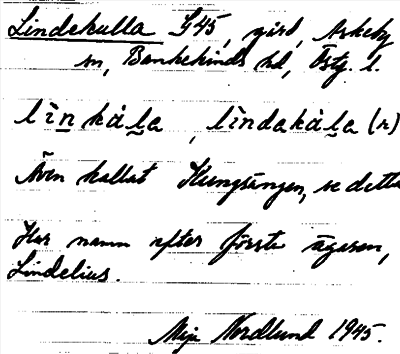 Lindekulla G45, gård, Askeby
sn, Bankekinds hd, Östg. l.
lìnkáḷa, lìndakàḷa (n)
Även kallat Kungsängen, se detta
Har namn efter förste ägaren,
Lindelius.
Nordlund 1945.